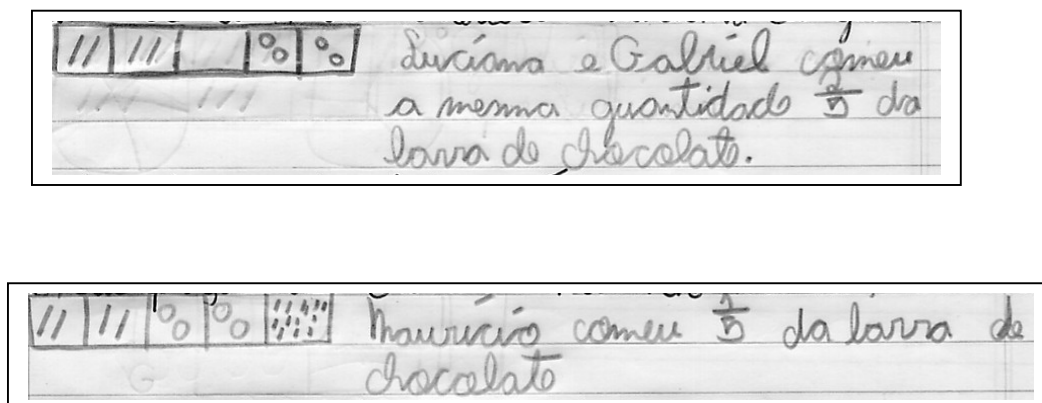 Luciana e Gabriel comeu
a mesma quantidade 2/5 da
barra de chocolate.
Mauricio comeu 1/5 da barra de
chocolate